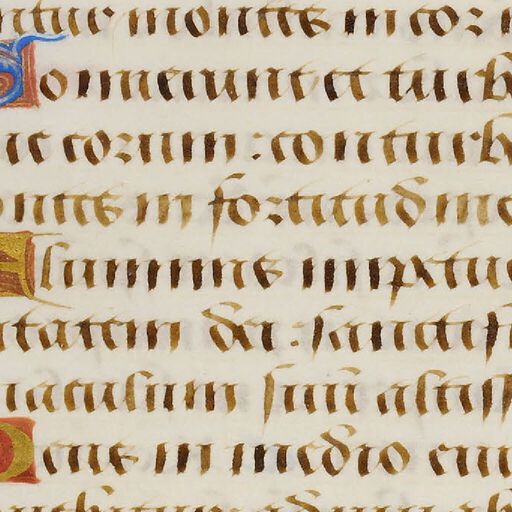 ntur montes in cor
Sonuerunt et turb
ue eorum: conturb
ontes in fortitudine
Fluminis impetus
itatem dei: sanctif
naculum suū altiss
Deus in medio eiu